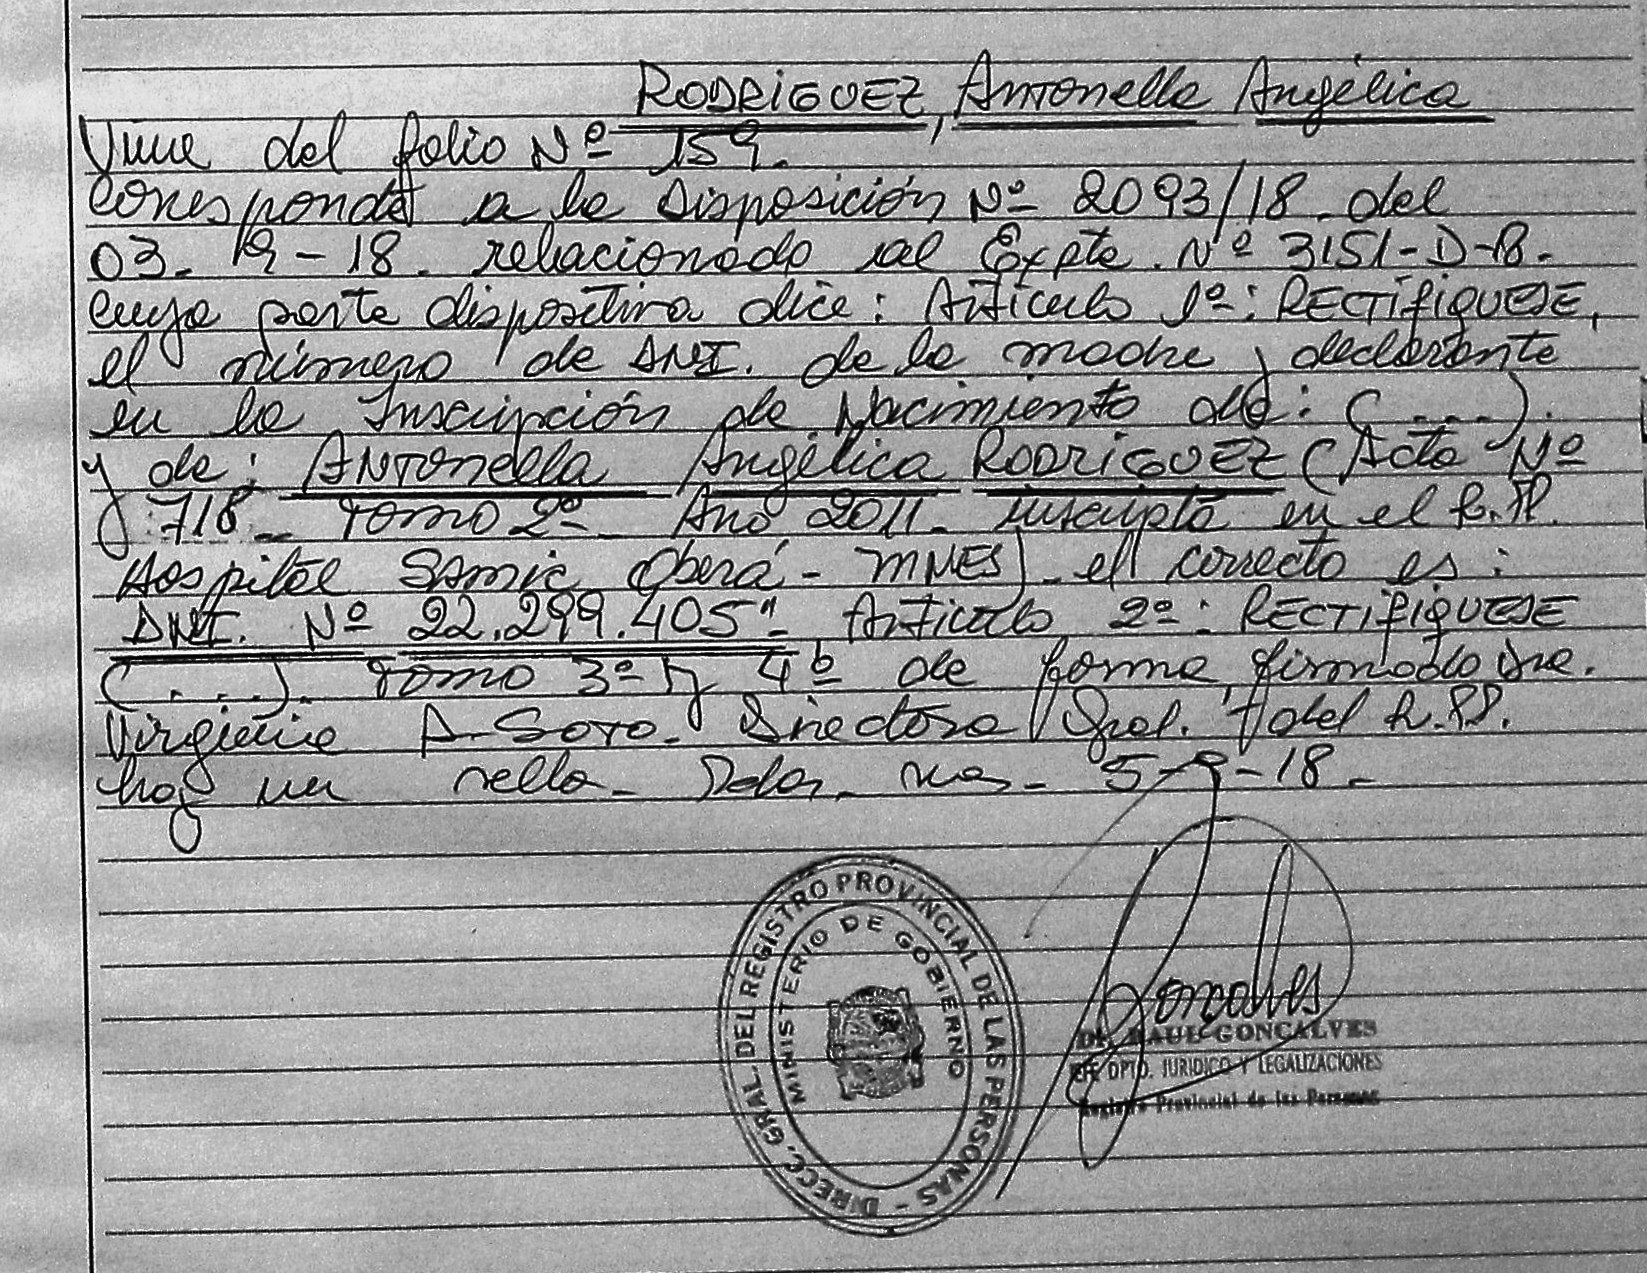 RODRÍGUEZ, Antonella Angélica
Viene del folio Nº 159.
Corresponde a la Disposición Nº 2093/18. del
03. 9-18. relacionado al Expte. Nº 3151-D-18.
cuya parte dispositiva dice: Artículo 1º: RECTIFIQUESE,
el número de DNI. de la madre y declarante
en la Inscripción de Nacimiento de: (....).
y de: ANTONELLA Angélica RODRÍGUEZ (Acta Nº
718 - Tomo 2º - Año 2011. inscripta en el R.P.
Hospital Samic Oberá - MNES) - el correcto es:
DNI. Nº 22.299.405" Artículo 2º: RECTIFIQUESE
(....). Tomo 3º y 4º de forma, firmado Dra.
Virginia A. SOTO. Directora Gral. del R.PP.
hay un sello. Pdas. Mnes. 5-9-18.
DIRECC. GRAL. DEL REGISTRO PROVINCIAL DE LAS PERSONAS -
MINISTERIO DE GOBIERNO
Goncalves
Dr. RAUL GONCALVES
JEFE DPTO. JURIDICO Y LEGALIZACIONES
Registro Provincial de las Personas